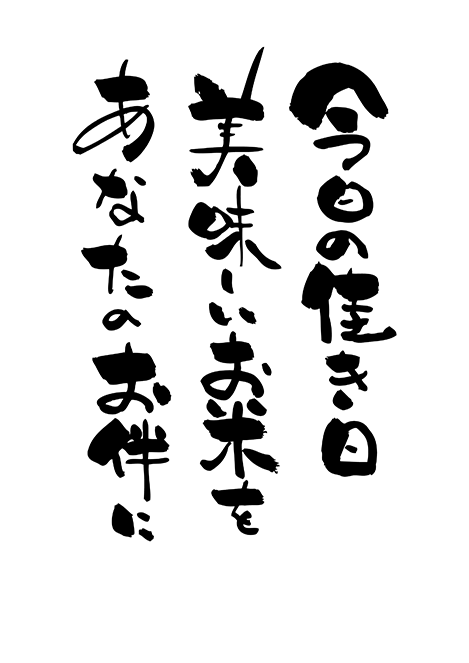 今日の佳き日
美味しいお米を
あなたのお伴に